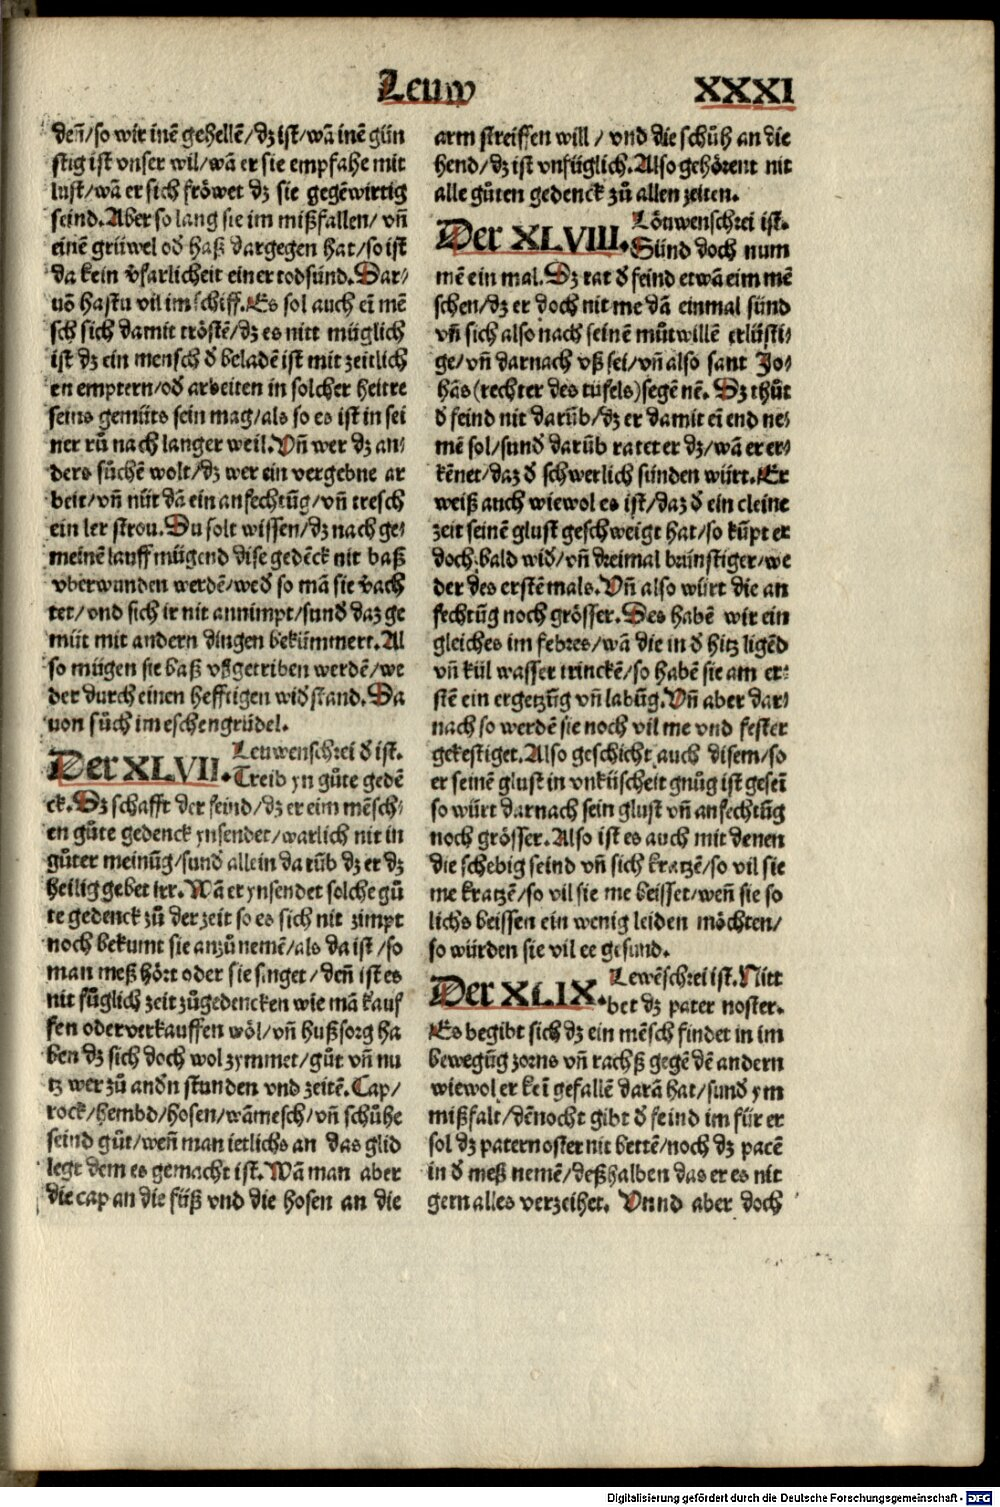 Leuw
XXXI
deñ/so wir inē gehellē/dz ist/wā inē gün
stig ist vnser wil/wā er sie empfahe mit
lust/wā er sich fröwet dz sie gegēwirtig
seind. Aber so lang sie im mißfallen/vñ
einē grüwel od haß dargegen hat/so ist
da kein vfarlicheit einer todsünd. Dar/
uō hastu vil im schiff. Es sol auch eī mē
sch sich damit tröstē/dz es nitt müglich
ist dz ein mensch d beladē ist mit zeitlich
en emptern/od arbeiten in solcher heitre
seins gemüts sein mag/als so es ist in sei
ner rů nach langer weil. Vñ wer dz an/
ders sůchē wolt/dz wer ein vergebne ar
beit/vñ nüt dā ein anfechtūg/vñ tresch
ein ler strou. Du solt wissen/dz nach ge/
meinē lauff mügend dise gedēck nit baß
vberwunden werdē/wed so mā sie vach
tet/vnd sich ir nit annimpt/sund daz ge
müt mit andern dingen bekümmert. Al
so mügen sie baß vßgetriben werdē/we
der durch einen hefftigen widstand. Da
uon sůch im eschengrüdel.
Der XLVII. Leuwenschrei d ist.
Treib yn gůte gedē
ck. Dz schafft der feind/dz er eim mēsch/
en gůte gedenck ynsendet/warlich nit in
gůter meinūg/sund allein darūb dz er dz
heilig gebet irr. Wā er ynsendet solche gů
te gedenck zů der zeit so es sich nit zimpt
noch bekumt sie anzůnemē/als da ist/so
man meß hört oder sie singet/deñ ist es
nit fůglich zeit zůgedencken wie mā kauf
fen oder verkauffen wöl/vñ hußsorg ha
ben dz sich doch wol zymmet/gůt vñ nu
tz wer zů andn stunden vnd zeitē. Cap/
rock/hembd/hosen/wāmesch/vñ schůhe
seind gůt/weñ man ietlichs an das glid
legt dem es gemacht ist. Wā man aber
die cap an die füß vnd die hosen an die
arm streiffen will/vnd die schůh an die
hend/dz ist vnfüglich. Also gehörent nit
alle gůten gedenck zů allen zeiten.
Der XLVIII. Löuwenschrei ist.
Sünd doch num
mē ein mal. Dz rat d feind etwā eim mē
schen/dz er doch nit me dā einmal sünd
vñ sich also nach seinē můtwillē erlüsti/
ge/vñ darnach vß sei/vñ also sant Jo/
hās(rechter des tüfels)segē nē. Dz thůt
d feind nit darūb/dz er damit eī end ne/
mē sol/sund darūb ratet er dz/wā er er/
kēnet/daz d schwerlich sünden würt. Er
weiß auch wiewol es ist/daz d ein cleine
zeit seinē glust geschweigt hat/so kūpt er
doch bald wid/vñ dreimal brünstiger/we
der des erstē mals. Vñ also würt die an
fechtūg noch grösser. Des habē wir ein
gleiches im febres/wā die in d hitz ligēd
vñ kül wasser trinckē/so habē sie am er/
stē ein ergetzūg vñ labūg. Vñ aber dar/
nach so werdē sie noch vil me vnd fester
gekestiget. Also geschicht auch disem/so
er seinē glust in vnküscheit gnůg ist geseī
so würt darnach sein glust vñ anfechtūg
noch grösser. Also ist es auch mit denen
die schebig seind vñ sich kratzē/so vil sie
me kratzē/so vil sie me beisset/weñ sie so
lichs beissen ein wenig leiden möchten/
so würden sie vil ee gesund.
Der XLIX. Lewēschrei ist. Nitt
bet dz pater noster.
Es begibt sich dz ein mēsch findet in im
bewegūg zorns vñ rachß gegē dē andern
wiewol er keī gefallē darā hat/sund ym
mißfalt/dēnocht gibt d feind im für er
sol dz paternoster nit bettē/noch dz pacē
in d meß nemē/deßhalben das er es nit
gern alles verzeihet. Vnnd aber doch
Digitalisierung gefördert durch die Deutsche Forschungsgemeinschaft - DFG